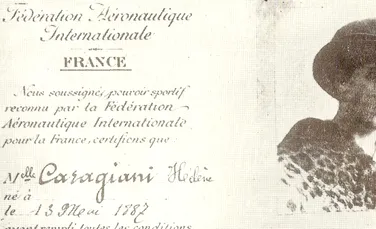 Fédération Aéronautique
Internationale
FRANCE
Nous soussignés, pouvoir sportif
reconnu par la Fédération
Aéronautique Internationale
pour la France, certifions que
Melle Caragiani Hélène
né à
le 13 Mai 1887
ayant rempli toutes les conditions